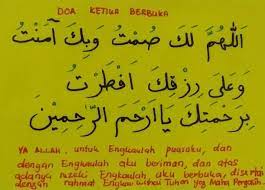 DOA KETIKA BERBUKA
اَللّٰهُمَّ لَكَ صُمْتُ وَبِكَ آمَنْتُ
وَعَلَى رِزْقِكَ اَفْطَرْتُ
بِرَحْمَتِكَ يَااَرْحَمَ الرَّاحِمِيْنَ
YA ALLAH, untuk Engkaulah puasaku, dan
dengan Engkaulah aku beriman, dan atas
adanya rezeki Engkaulah aku berbuka, disertai
dengan rahmat Engkau wahai Tuhan yg Maha Pengasih